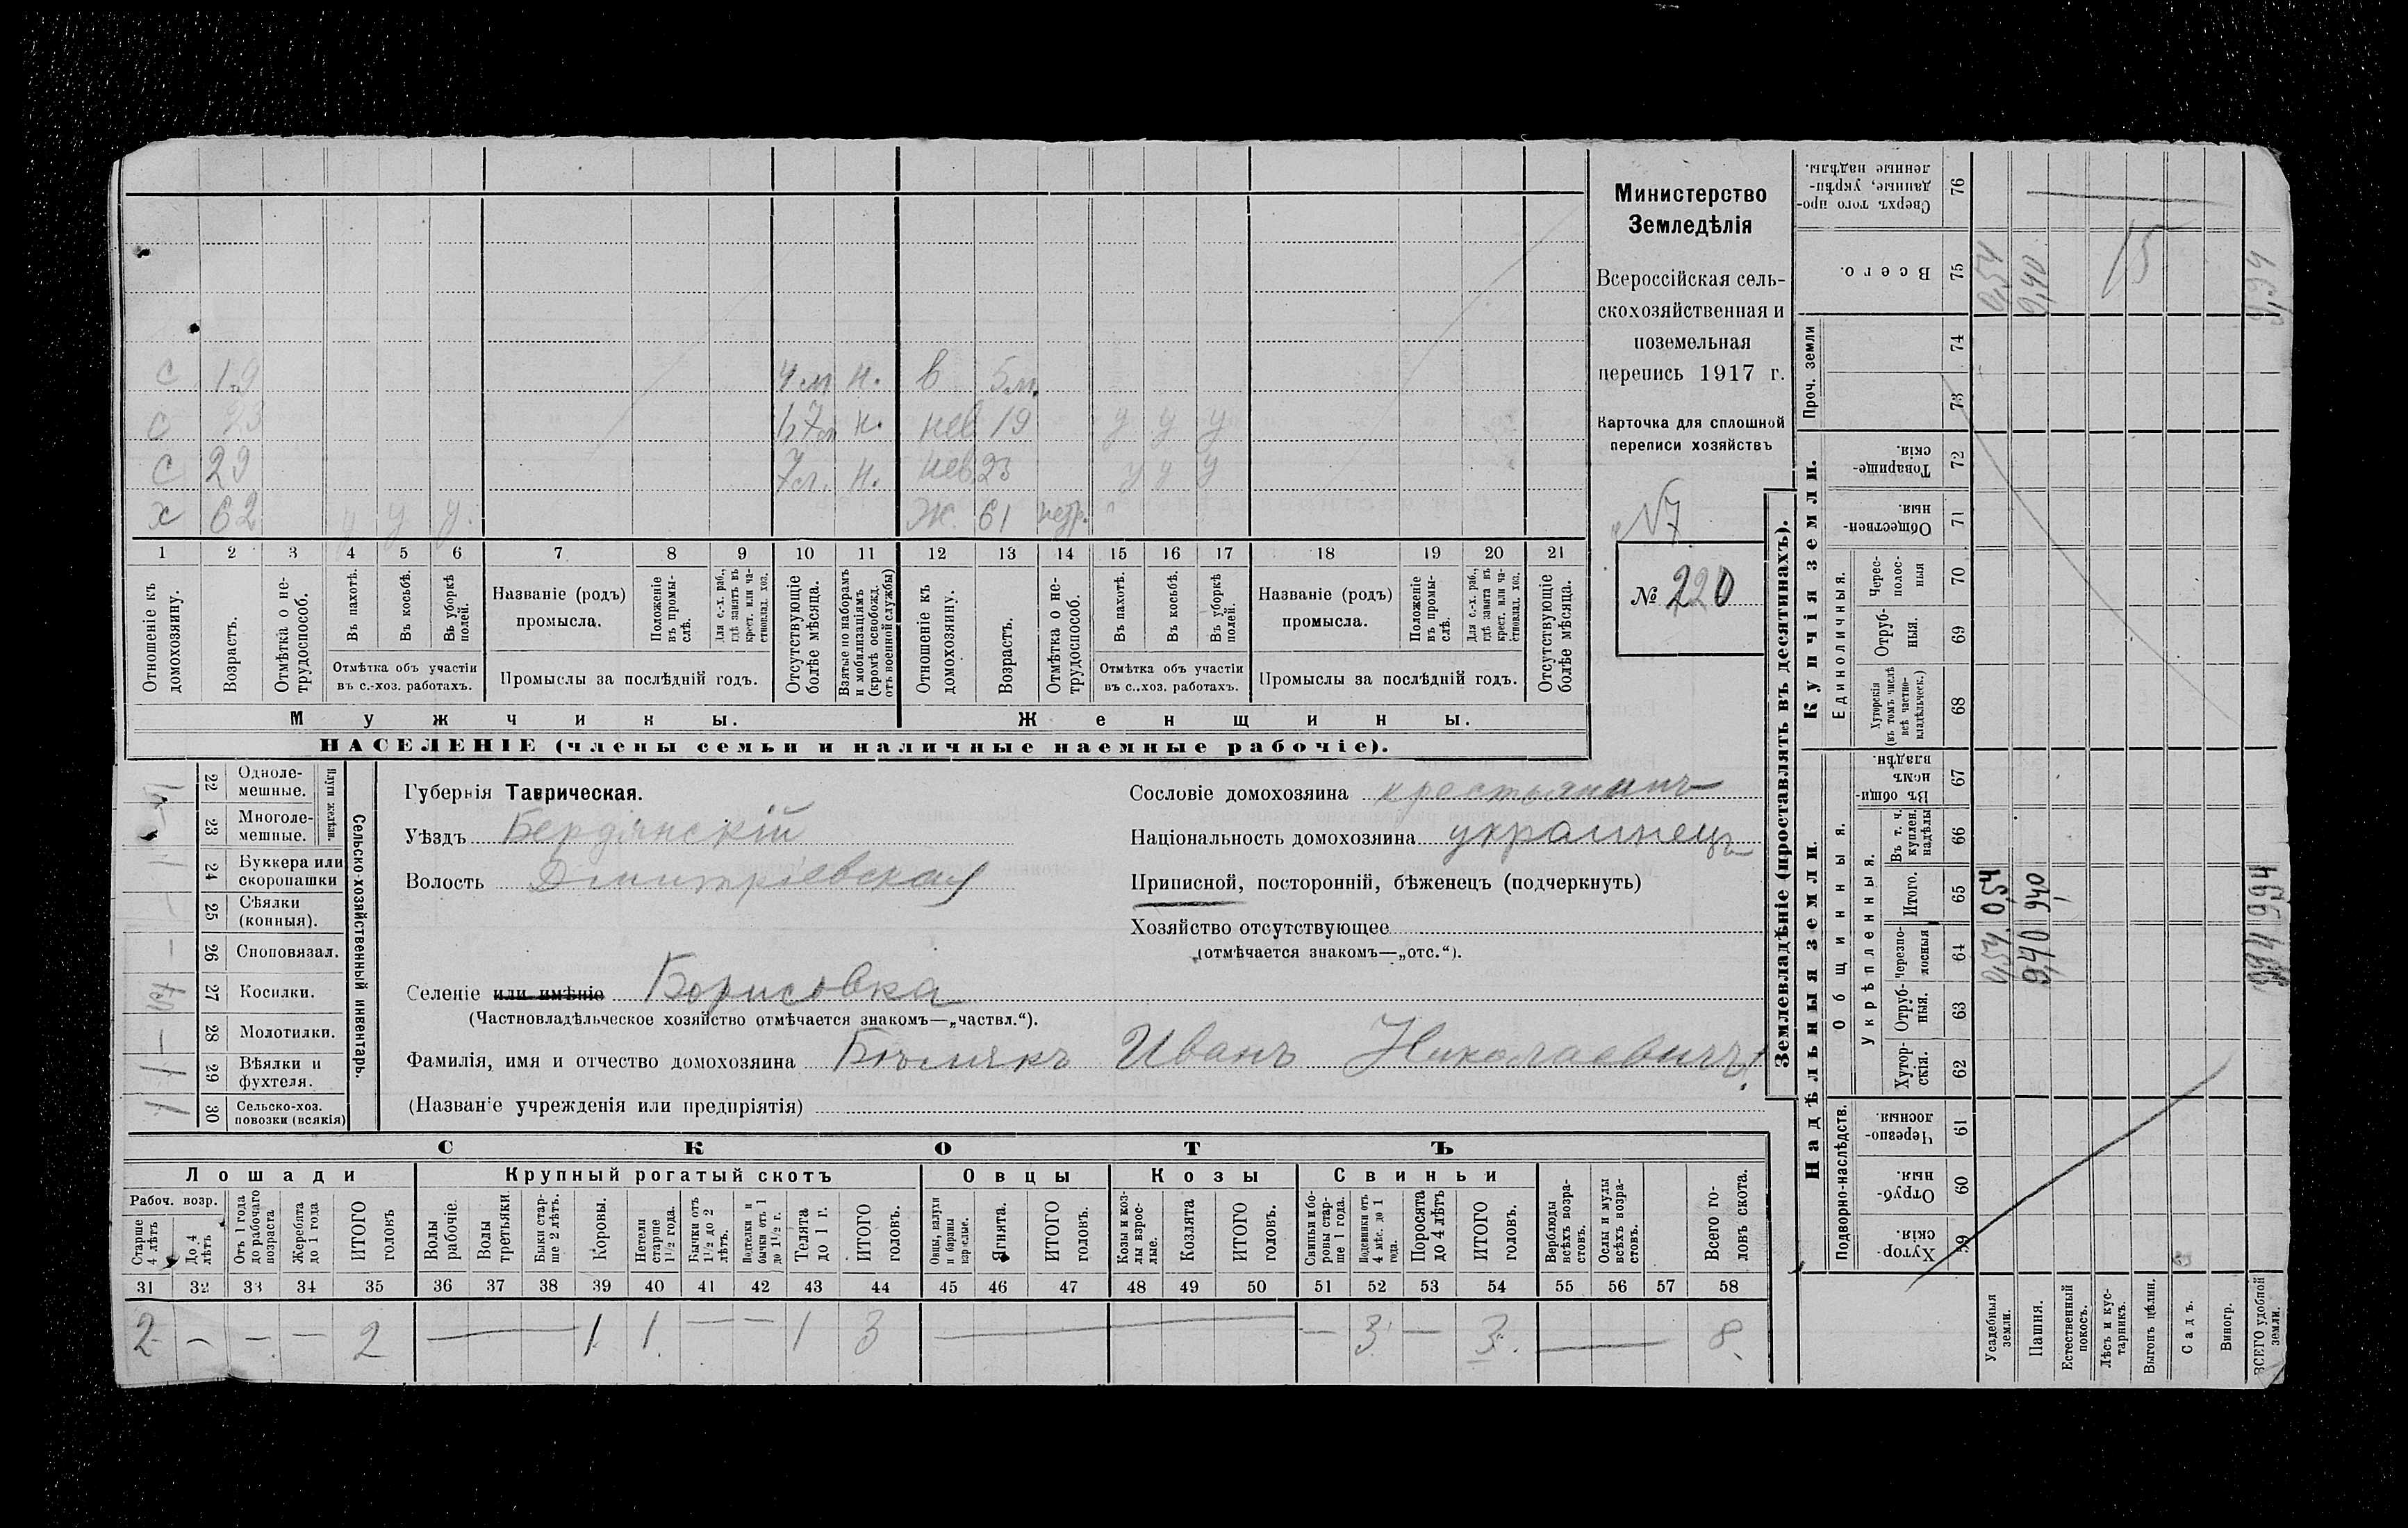 Министерство
Земледѣлія
Всероссійская сель-
скохозяйственная и
поземельная
перепись 1917 г.
Карточка для сплошной
переписи хозяйствъ
№ 220
с 19 4 м н. в 5 м.
с 23 н. нев. 19 у у у
с 29 н. нев. 23 у у у
х 62 у у у. ж. 61 нетр.
1 2 3 4 5 6 7 8 9 10 11 12 13 14 15 16 17 18 19 20 21
Отношеніе къ домохозяину.
Возрастъ.
Отмѣтка о не-трудоспособ.
Въ пахотѣ.
Въ косьбѣ.
Въ уборкѣ полей.
Отмѣтка объ участіи
въ с.-хоз. работахъ.
Названіе (родъ)
промысла.
Положеніе въ промы-слѣ.
Для с.-х. раб., гдѣ занятъ въ крест. или ча-стновлад. хоз.
Промыслы за послѣдній годъ.
Отсутствующіе болѣе мѣсяца.
Взятые по наборамъ и мобилизаціямъ (кромѣ освобожд. отъ военной службы)
Отношеніе къ домохозяину.
Возрастъ.
Отмѣтка о не-трудоспособ.
Въ пахотѣ.
Въ косьбѣ.
Въ уборкѣ полей.
Отмѣтка объ участіи
въ с.-хоз. работахъ.
Названіе (родъ)
промысла.
Положеніе въ промы-слѣ.
Для с.-х. раб., гдѣ занята въ крест. или ча-стновлад. хоз.
Промыслы за послѣдній годъ.
Отсутствующіе болѣе мѣсяца.
Мужчины.
Женщины.
НАСЕЛЕНІЕ (члены семьи и наличные наемные рабочіе).
Сельско-хозяйственный инвентарь.
Плуги желѣзн.
22 Одноле-мешные.
23 Многоле-мешные.
24 Буккера или скоропашки
25 Сѣялки (конныя).
26 Сноповязал.
27 Косилки.
28 Молотилки.
29 Вѣялки и фухтеля. 1
30 Сельско-хоз. повозки (всякія) 1
Губернія Таврическая.
Уѣздъ Бердянскій
Волость Дмитріевская
Селеніе или имѣніе Борисовка
(Частновладѣльческое хозяйство отмѣчается знакомъ—„частвл.“).
Фамилія, имя и отчество домохозяина Иванъ Николаевичъ
(Названіе учрежденія или предпріятія)
Сословіе домохозяина крестьянинъ
Національность домохозяина украинецъ
Приписной, посторонній, бѣженецъ (подчеркнуть)
Хозяйство отсутствующее
(отмѣчается знакомъ—„отс.“).
СКОТЪ
Лошади
Крупный рогатый скотъ
Овцы
Козы
Свиньи
Рабоч. возр.
Старше 4 лѣтъ
До 4 лѣтъ
Отъ 1 года до рабочаго возраста
Жеребята до 1 года
ИТОГО головъ
Волы рабочіе.
Волы третьяки.
Быки стар-ше 2 лѣтъ.
Коровы.
Нетели старше 1½ года.
Бычки отъ 1½ до 2 лѣтъ.
бычки отъ 1 до 1½ г.
Телята до 1 г.
ИТОГО головъ.
Овцы, валухи и бараны взрослые.
Ягнята.
ИТОГО головъ.
Козы и коз-лы взрос-лые.
Козлята
ИТОГО головъ.
Свиньи и бо-ровы стар-ше 1 года.
Подсвинки отъ 4 мѣс. до 1 года.
Поросята до 4 лѣтъ
ИТОГО головъ.
Верблюды всѣхъ возра-стовъ.
Ослы и мулы всѣхъ возра-стовъ.
Всего го-ловъ скота.
31 32 33 34 35 36 37 38 39 40 41 42 43 44 45 46 47 48 49 50 51 52 53 54 55 56 57 58
2 — — — 2 — 1 1 — — 1 3 — — 3 — 3. — 8
Землевладѣніе (проставлять въ десятинахъ).
Надѣльныя земли.
Купчія земли.
Проч. земли
Подворно-наслѣдств.
Общинныя.
Укрѣпленныя.
Единоличныя.
Хутор-скія. 59
Отруб-ныя. 60
Черезпо-лосныя 61
Хутор-скія. 62
Отруб-ныя. 63
Черезпо-лосныя 64
Итого. 65
Въ т. ч. куплен. надѣлы 66
Въ общин-номъ владѣн. 67
Хуторскія (въ томъ числѣ всѣ частно-владѣльческ.) 68
Отруб-ныя. 69
Черес-полос-ныя 70
Обществен-ныя. 71
Товарище-скія. 72
73
74
Всего. 75
Сверхъ того про-данные, укрѣп-ленные надѣлы. 76
Усадебныя земли. 0,54 0,54 0,54
Пашня. 9,40 9,40 9,40
Естественный покосъ.
Лѣсъ и кус-тарникъ.
Выгонъ цѣлин.
Садъ.
Виногр.
ВСЕГО удобной земли. 9,94 9,94 9,94
15